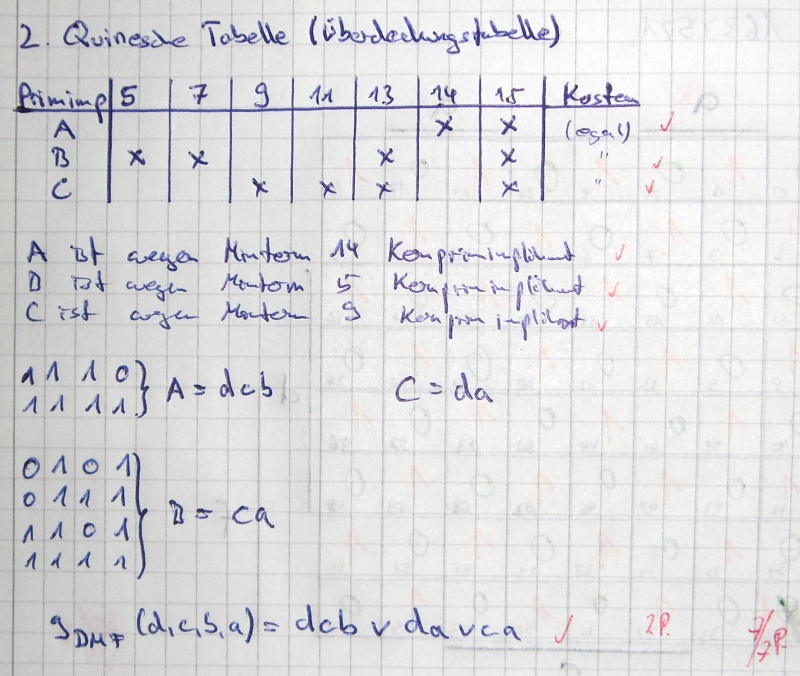 2. Quinesche Tabelle (Überdeckungstabelle)
Primimp 5 7 9 11 13 14 15 Kosten
A x x (egal) ✓
B x x x x " ✓
C x x x x " ✓
A ist wegen Minterm 14 Kernprimimplikant ✓
B ist wegen Minterm 5 Kernprimimplikant ✓
C ist wegen Minterm 9 Kernprimimplikant ✓
1 1 1 0 } A = dcb C = da
1 1 1 1
0 1 0 1
0 1 1 1
1 1 0 1 } B = ca
1 1 1 1
g DMF (d,c,b,a) = dcb v da v ca ✓ 2P. 7/7P.